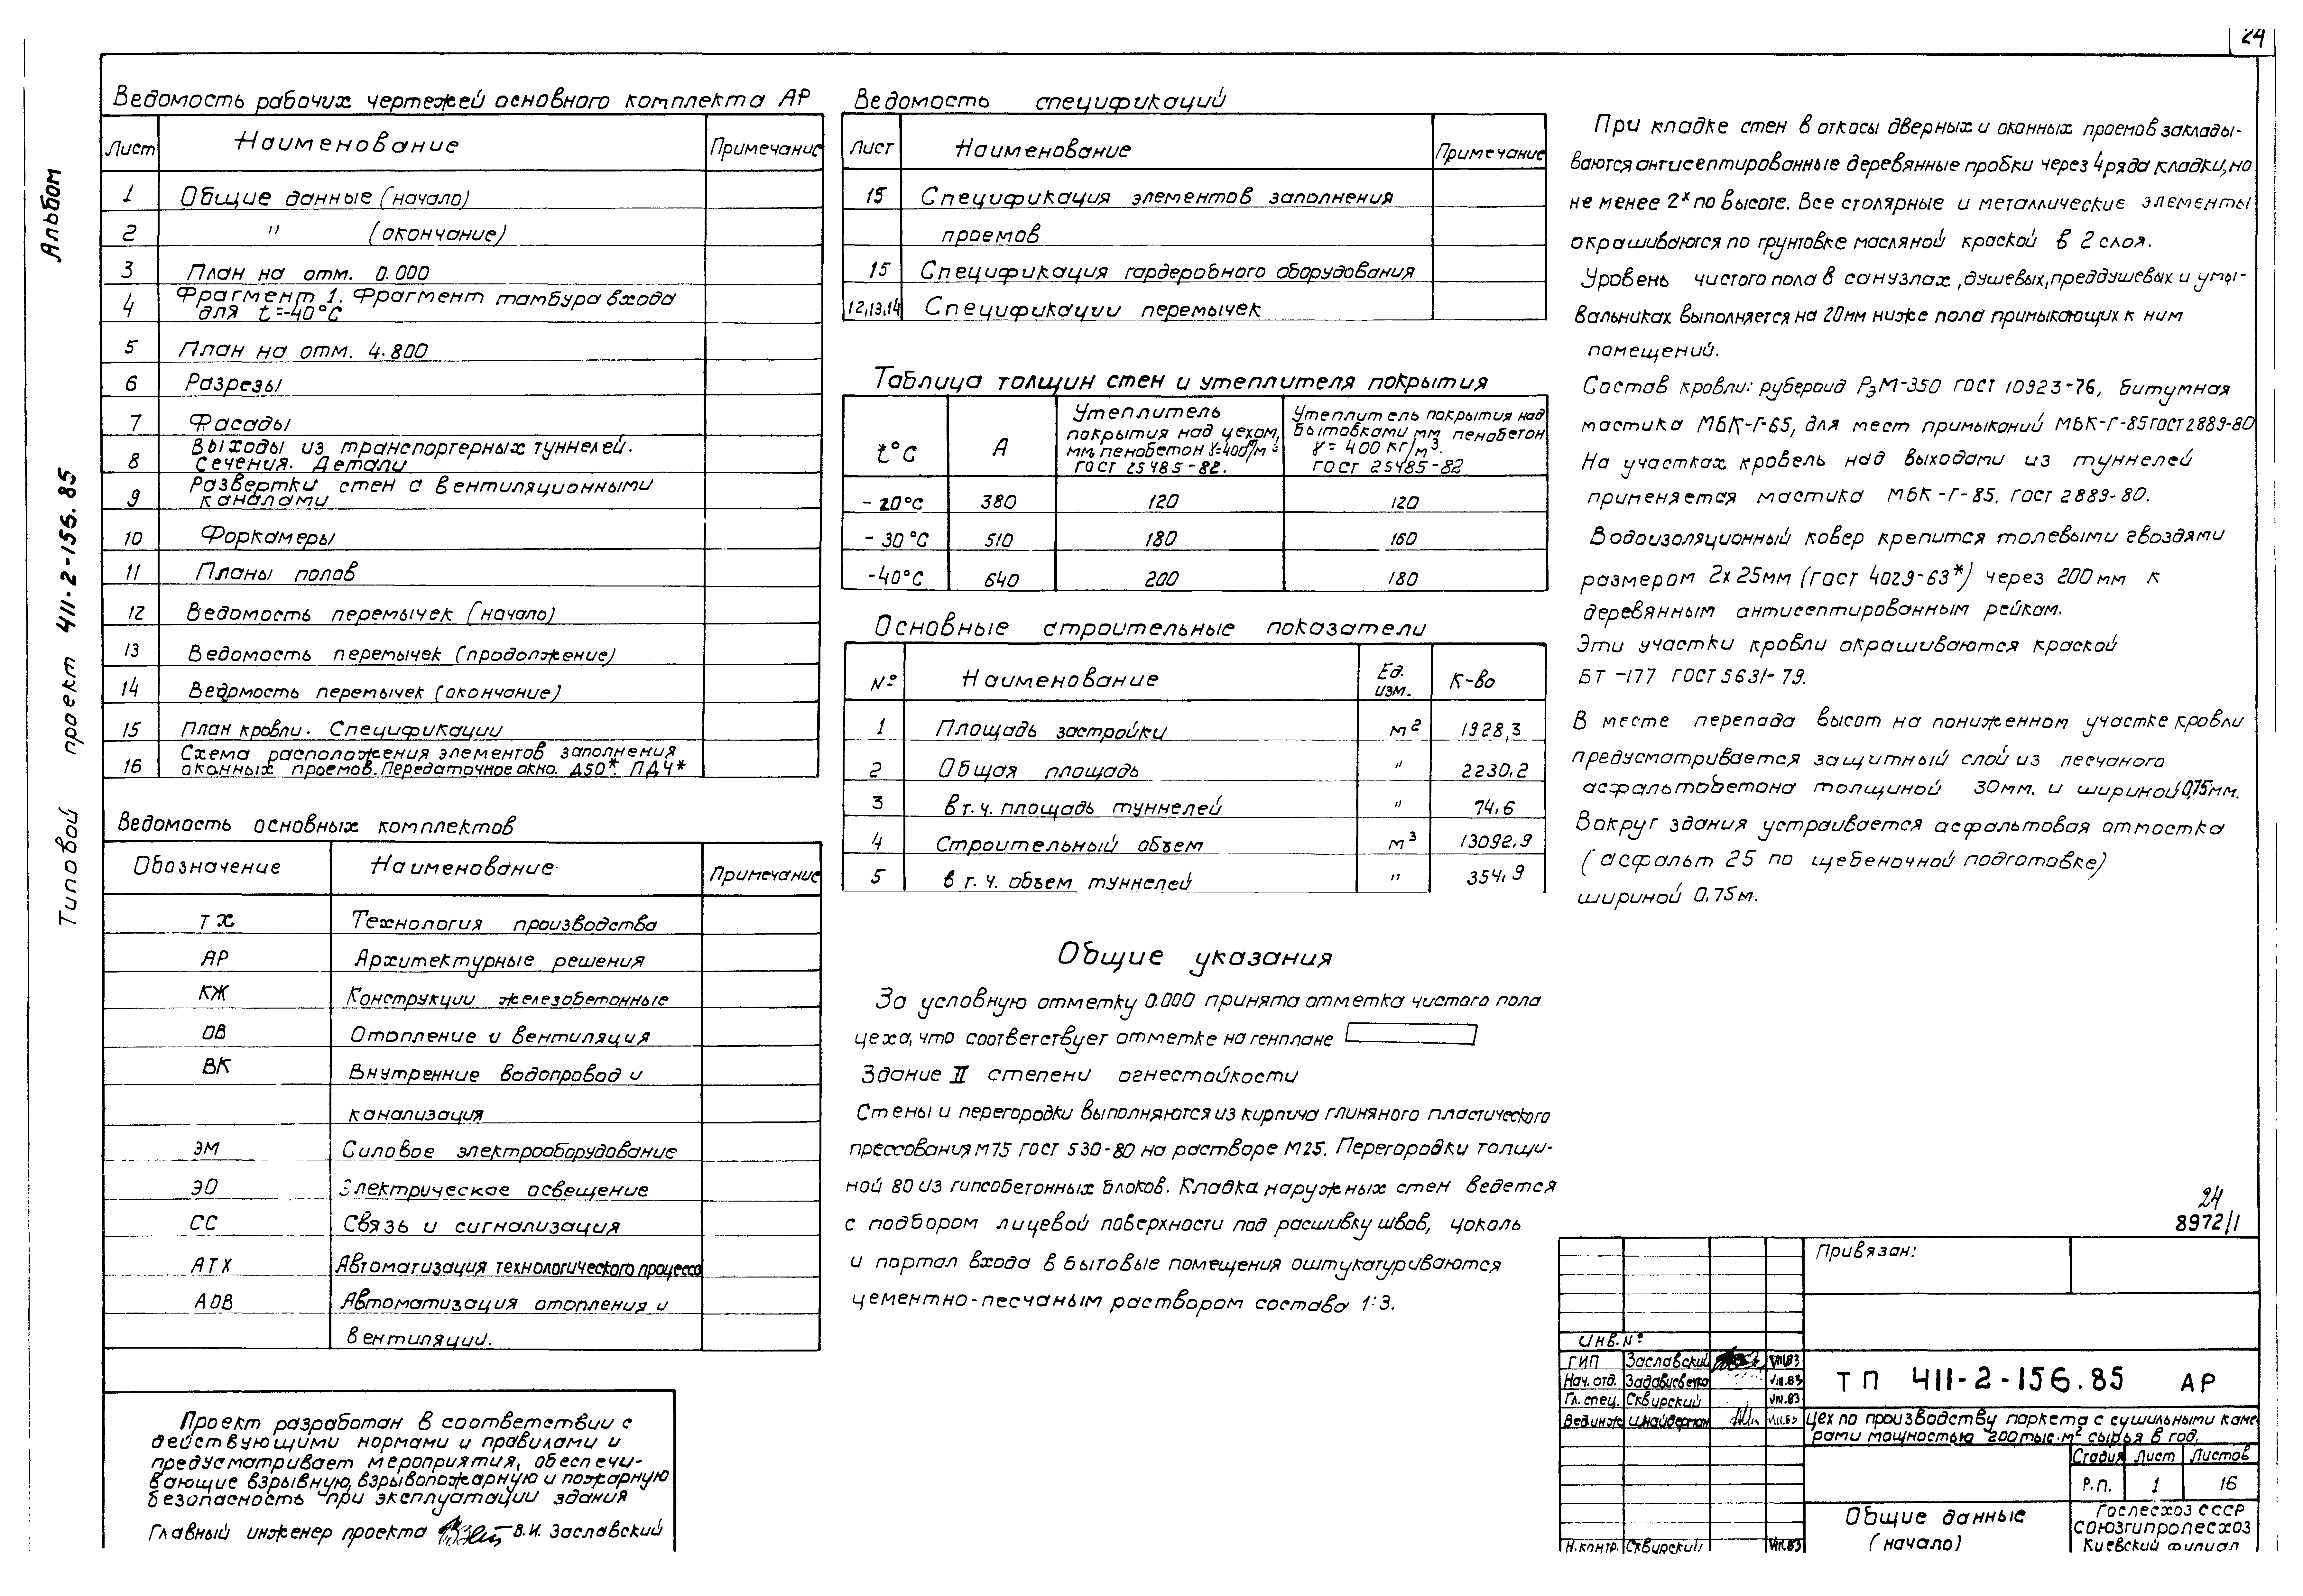 24
Альбом
Типовой проект 411-2-156.85
Ведомость рабочих чертежей основного комплекта АР
Лист Наименование Примечание
1 Общие данные (начало)
2 " (окончание)
3 План на отм. 0.000
4 Фрагмент 1. Фрагмент тамбура входа
для t=-40°С
5 План на отм. 4.800
6 Разрезы
7 Фасады
8 Выходы из транспортерных туннелей.
Сечения. Детали
9 Развертки стен с вентиляционными
каналами
10 Форкамеры
11 Планы полов
12 Ведомость перемычек (начало)
13 Ведомость перемычек (продолжение)
14 Ведомость перемычек (окончание)
15 План кровли. Спецификации
16 Схема расположения элементов заполнения
оконных проемов. Передаточное окно. Д50*. ПД4*
Ведомость основных комплектов
Обозначение Наименование Примечание
ТХ Технология производства
АР Архитектурные решения
КЖ Конструкции железобетонные
ОВ Отопление и вентиляция
ВК Внутренние водопровод и
канализация
ЭМ Силовое электрооборудование
ЭО Электрическое освещение
СС Связь и сигнализация
АТХ Автоматизация технологического процесса
АОВ Автоматизация отопления и
вентиляции.
Проект разработан в соответствии с
действующими нормами и правилами и
предусматривает мероприятия, обеспечи-
вающие взрывную, взрывопожарную и пожарную
безопасность при эксплуатации здания
Главный инженер проекта В.И. Заславский
Ведомость спецификаций
Лист Наименование Примечание
15 Спецификация элементов заполнения
проемов
15 Спецификация гардеробного оборудования
12,13,14 Спецификации перемычек
Таблица толщин стен и утеплителя покрытия
t°С А Утеплитель покрытия над цехом, мм, пенобетон γ=400кг/м³ ГОСТ 25485-82. Утеплитель покрытия над бытовками мм пенобетон γ = 400 кг/м³. ГОСТ 25485-82
-20°С 380 120 120
-30°С 510 180 160
-40°С 640 200 180
Основные строительные показатели
№ Наименование Ед. изм. К-во
1 Площадь застройки м² 1928,3
2 Общая площадь " 2230,2
3 в т.ч. площадь туннелей " 74,6
4 Строительный объем м³ 13092,9
5 в т.ч. объем туннелей " 354,9
Общие указания
За условную отметку 0.000 принята отметка чистого пола
цеха, что соответствует отметке на генплане
Здание II степени огнестойкости
Стены и перегородки выполняются из кирпича глиняного пластического
прессования М75 ГОСТ 530-80 на растворе М25. Перегородки толщи-
ной 80 из гипсобетонных блоков. Кладка наружных стен ведется
с подбором лицевой поверхности под расшивку швов, цоколь
и портал входа в бытовые помещения оштукатуриваются
цементно-песчаным раствором состава 1:3.
При кладке стен в откосы дверных и оконных проемов заклады-
ваются антисептированные деревянные пробки через 4 ряда кладки, но
не менее 2х по высоте. Все столярные и металлические элементы
окрашиваются по грунтовке масляной краской в 2 слоя.
Уровень чистого пола в санузлах, душевых, преддушевых и умы-
вальниках выполняется на 20мм ниже пола примыкающих к ним
помещений.
Состав кровли: рубероид РэМ-350 ГОСТ 10923-76, битумная
мастика МБК-Г-65, для мест примыканий МБК-Г-85 ГОСТ 2889-80
На участках кровель над выходами из туннелей
применяется мастика МБК-Г-85. ГОСТ 2889-80.
Водоизоляционный ковер крепится толевыми гвоздями
размером 2х25мм (ГОСТ 4029-63*) через 200мм к
деревянным антисептированным рейкам.
Эти участки кровли окрашиваются краской
БТ-177 ГОСТ 5631-79.
В месте перепада высот на пониженном участке кровли
предусматривается защитный слой из песчаного
асфальтобетона толщиной 30мм. и шириной 0,75мм.
Вокруг здания устраивается асфальтовая отмостка
(асфальт 25 по щебеночной подготовке)
шириной 0,75м.
24
8972/1
Привязан:
Инв.№
ГИП Заславский VIII.83
Нач. отд. VIII.83
Гл. спец. Сквирский VIII.83
Вед.инж Шнайдерман VIII.83
Н.контр. Сквирский VIII.83
ТП 411-2-156.85 АР
Цех по производству паркета с сушильными каме-
рами мощностью 200тыс.м² сырья в год.
Стадия Лист Листов
Р.П. 1 16
Общие данные
(начало)
Гослесхоз СССР
Союзгипролесхоз
Киевский филиал